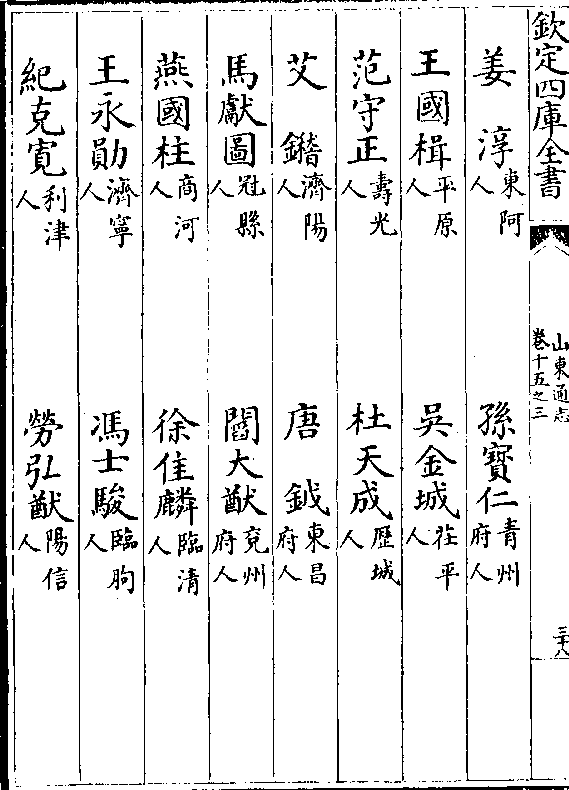 欽定四庫全書
山東通志
卷十五之三
三十八
姜淳東阿人
孫寳仁青州府人
王國楫平原人
吳金城茌平人
范守正壽光人
杜天成歴城人
艾鐕濟陽人
唐鉞東昌府人
馬獻圖冠縣人
閻大猷兖州府人
燕國柱商河人
徐佳麟臨清人
王永勛濟寧人
馮士駿臨朐人
紀克寛利津人
勞弘猷陽信人